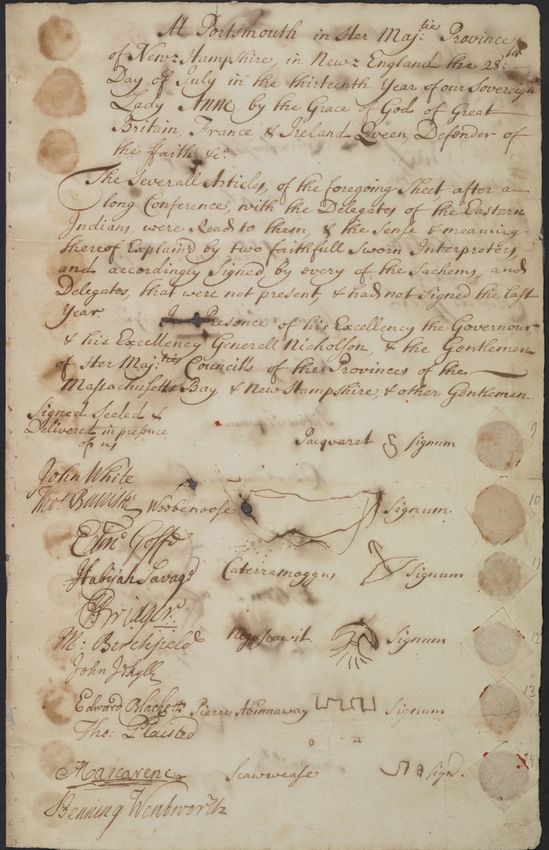 At Portsmouth in Her Maj:tie Province
of New-Hampshire, in New-England the 28:th
Day of July in the thirteenth Year of our Sovereign
Lady ANNE by the Grace of God of Great
Britain, France & Ireland Queen, Defender of
the ffaith &c:
The Severall Articles, of the foregoing Sheet after a
long Conference, with the Delegates of the Eastern
Indians, were Read to them, & the Sense & meaning
thereof Explain'd by two faithfull Sworn Interpreters
and accordingly Signed by every of the Sachems, and
Delegates, that were not present, & had not Signed the last
Year In Presence of his Excellency the Governour
& his Excellency Generall Nicholson, & the Gentlemen
of Her Maj:ties Councills of the Provinces of the
Massachusetts Bay & New Hampshire, & other Gentlemen.
Signed Sealed &
Delivered in presence
of us
Jacquaret signum 9
John White
Tho: Worbenoose Signum. 10
Edm: Goffe
Habijah Savage Caterramoggus Signum 11
M: Signum 12
John Jekyll
Edward Blackett Pierre Abinnaway Signum 13
Tho: Plaisted
Mascarene Scawwease Sign. 14
Benning Wentworth